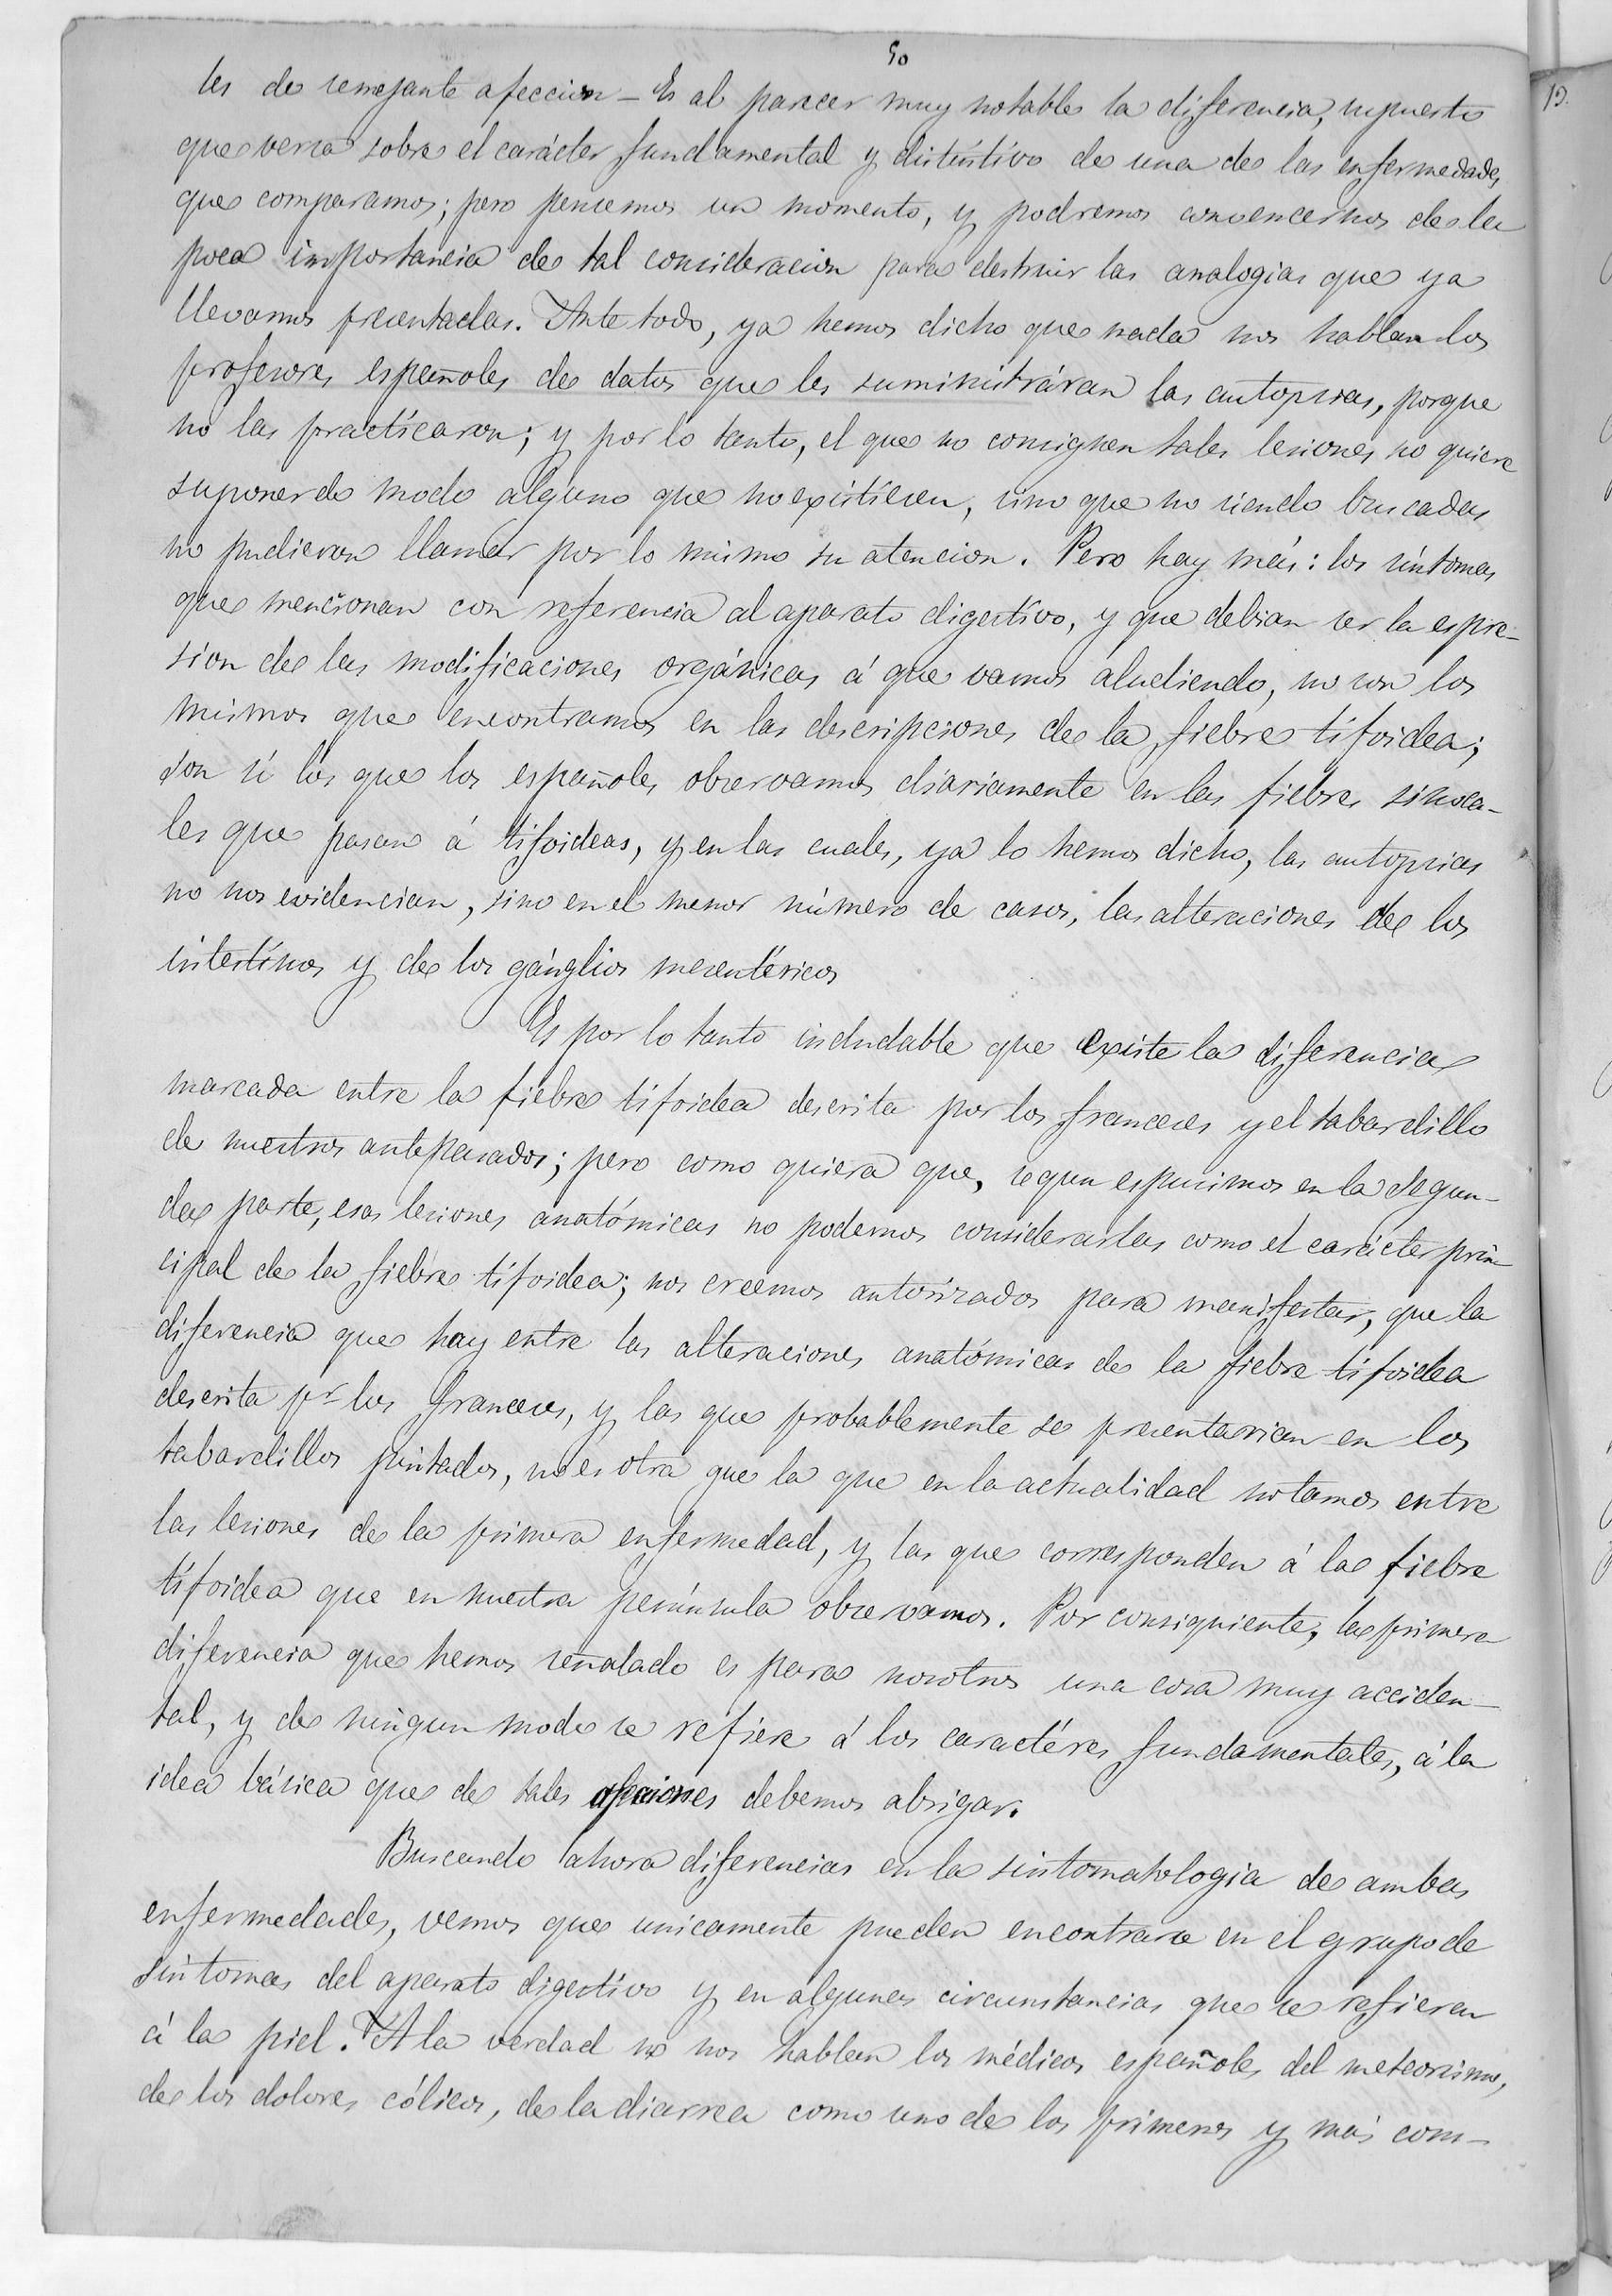 50
les de semejante afeccion — Es al parecer muy notable la diferencia, supuesto
que versa sobre el carácter fundamental y distintivo de una de las enfermedades
que comparamos; pero pensemos un momento, y podremos convencernos de la
poca importancia de tal consideracion para destruir las analogias que ya
llevamos presentadas. Ante todo, ya hemos dicho que nada nos hablan los
profesores españoles de datos que les sumininistráran las autopsias, porque
no las practicaron; y por lo tanto, el que no consignen tales lesiones no quiere
suponer de modo alguno que no existiesen, sino que no siendo buscadas
no pudieron llamar por lo mismo su atencion. Pero hay más: los síntomas
que mencionan con referencia al aparato digestivo, y que debian ser la espre-
sion de las modificaciones orgánicas á que vamos aludiendo, no son los
mismos que encontramos en las descripciones de la fiebre tifoidea;
son si los que los españoles observamos diariamente en las fiebres sinoca-
les que pasan á tifoideas, y en las cuales, ya lo hemos dicho, las autopsias
no nos evidencian, sino en el menor número de casos, las alteraciones de los
intestinos y de los gánglios mesentéricos
Es por lo tanto indudable que existe la diferencia
marcada entre la fiebre tifoidea descrita por los franceses y el tabardillo
de nuestros antepasados; pero como quiera que, segun espusimos en la segun-
da parte, esas lesiones anatómicas no podemos considerarlas como el carácter prin-
cipal de la fiebre tifoidea; nos creemos autorizados para manifestar, que la
diferencia que hay entre las alteraciones anatómicas de la fiebre tifoidea
descrita pr los franceses, y las que probablemente se presentarian en los
tabardillos pintados, no es otra que la que en la actualidad notamos entre
las lesiones de la primera enfermedad, y las que corresponden á la fiebre
tifoidea que en nuestra península observamos. Por consiguiente, la primera
diferencia que hemos señalado es para nosotros una cosa muy acciden-
tal, y de ningun modo se refiere á los caractéres fundamentales, á la
idea básica que de tales afecciones debemos abrigar.
Buscando ahora diferencias en la sintomatologia de ambas
enfermedades, vemos que unicamente pueden encontrarse en el grupo de
síntomas del aparato digestivo y en algunas circunstancias que se refieren
á la piel. A la verdad no nos hablan los médicos españoles del meteorismo,
de los dolores cólicos, de la diarrea como uno de los primeros y más com-